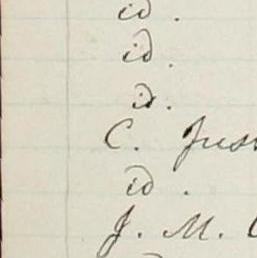 id.
id.
id.
C. Jus
id.
J. M.